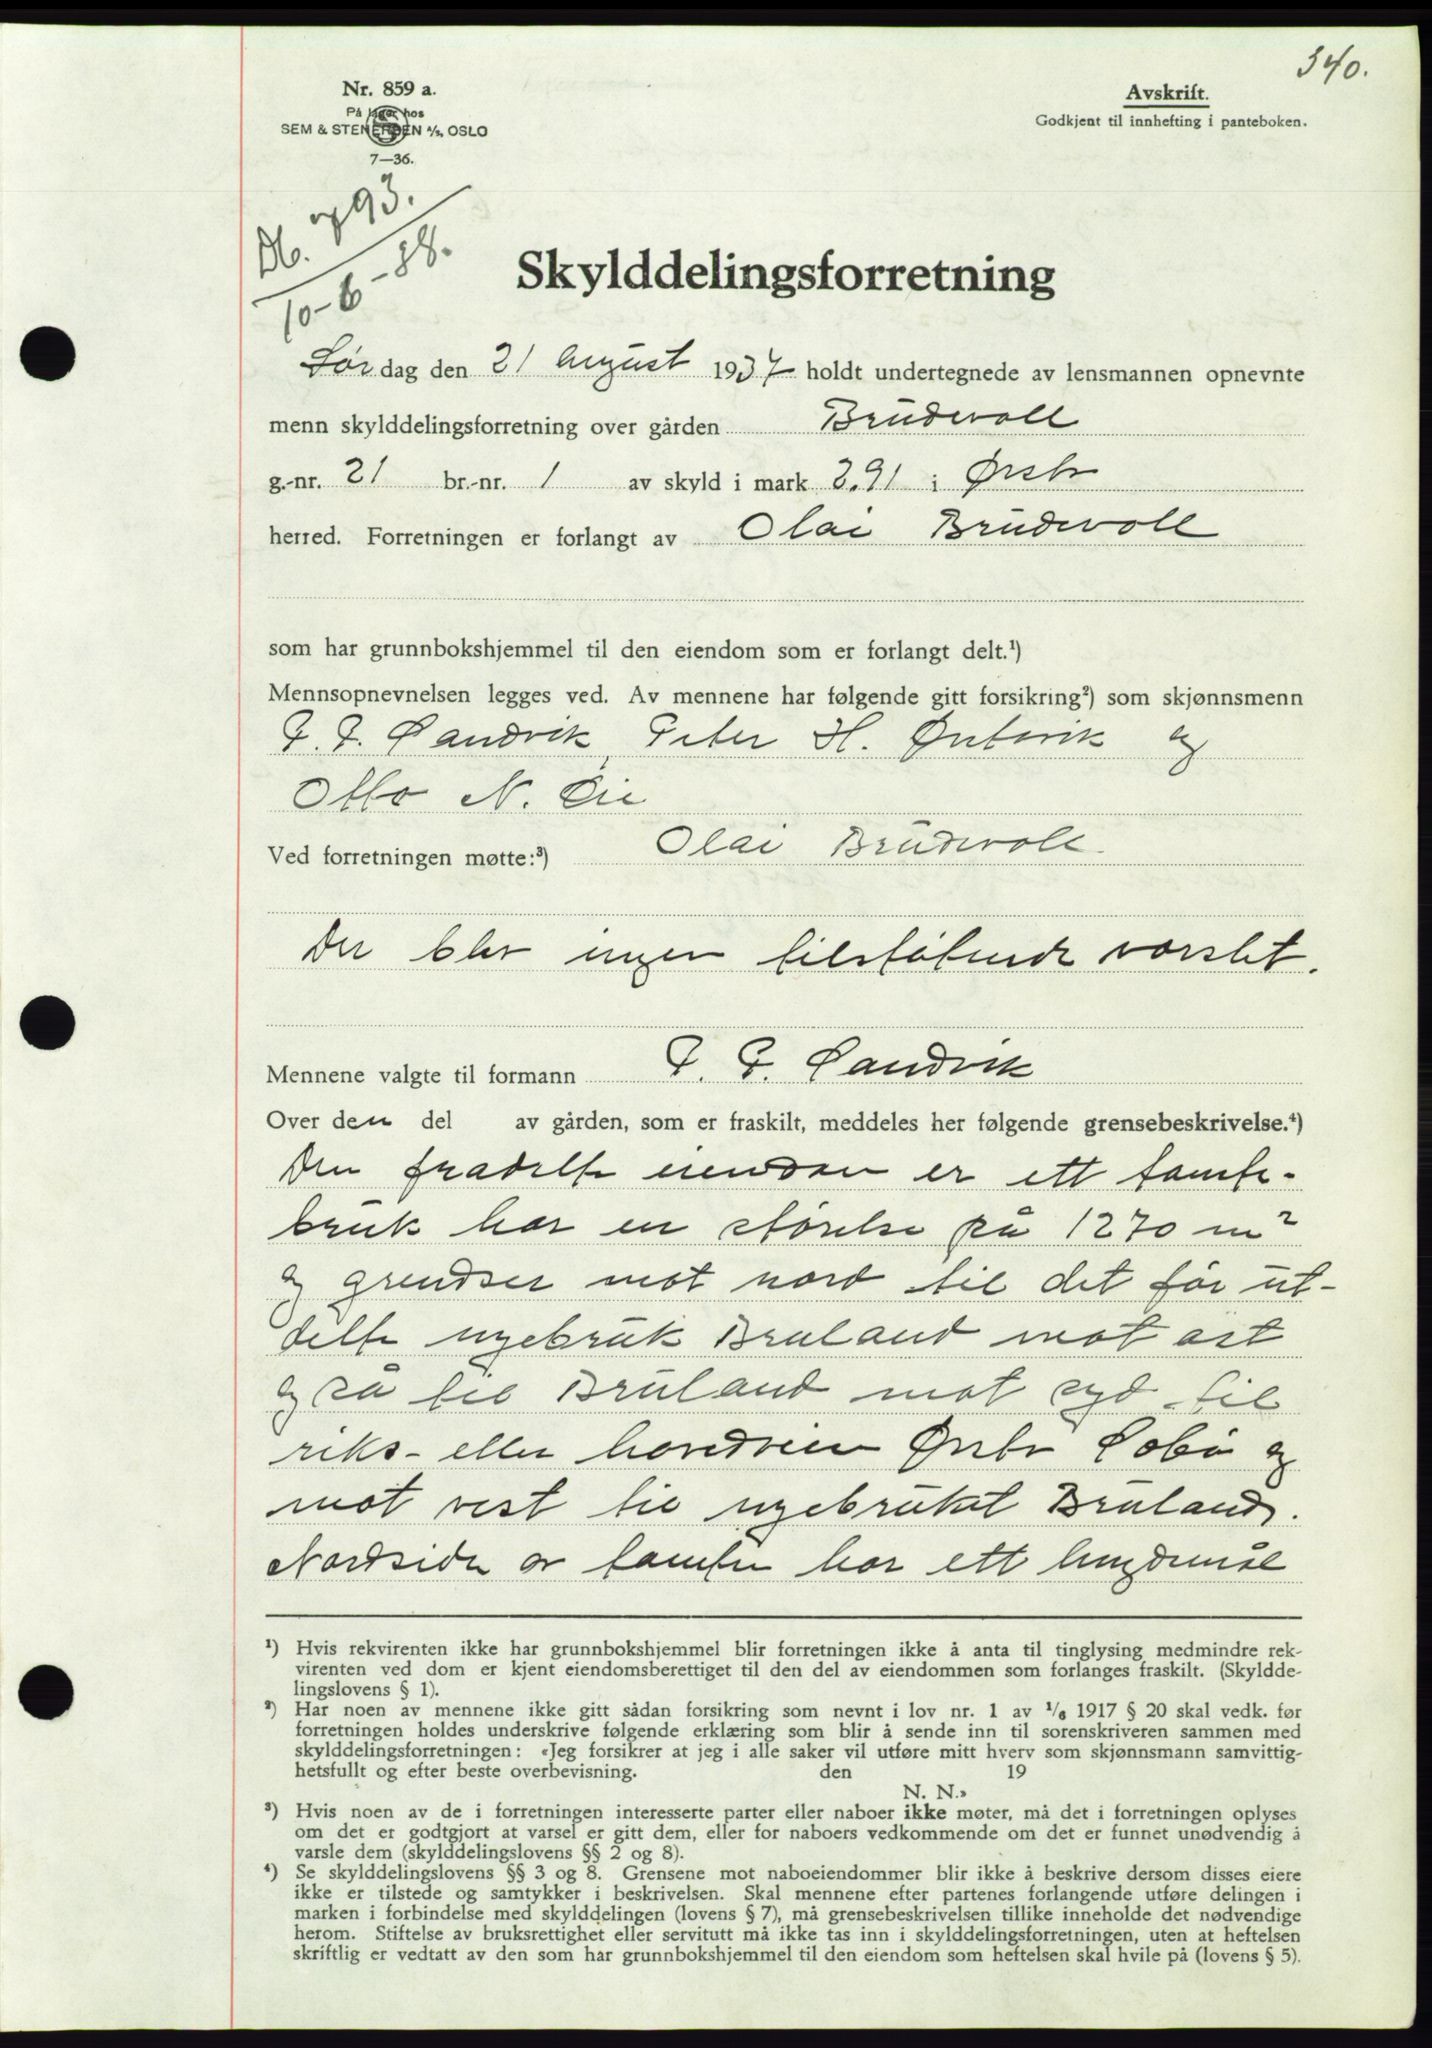 340.
Nr. 859 a.
På lager hos
SEM & STENERSEN A/S, OSLO
7—36.
Avskrift.
Godkjent til innhefting i panteboken.
Db. 793.
10-6-38.
Skylddelingsforretning
Lør dag den 21 august 1937 holdt undertegnede av lensmannen opnevnte
menn skylddelingsforretning over gården Brudevoll
g.-nr. 21 br.-nr. 1 av skyld i mark 2.91 i Ørsta
herred. Forretningen er forlangt av Olai Brudevoll
som har grunnbokshjemmel til den eiendom som er forlangt delt.¹)
Mennsopnevnelsen legges ved. Av mennene har følgende gitt forsikring²) som skjønnsmenn
P. P. Sandvik, Peter H. Ørstavik og
Otto N. Øie
Ved forretningen møtte:³) Olai Brudevoll.
Der blev ingen tilstøtende varslet.
Mennene valgte til formann P. P. Sandvik
Over den del av gården, som er fraskilt, meddeles her følgende grensebeskrivelse.⁴)
Den fradelte eiendom er ett tomte-
bruk har en størelse på 1270 m²
og grendser mot nord til det før ut-
delte nyebruk Bruland mot ast
og så til Bruland mot syd til
riks- eller hovedveien Ørsta Sæbø og
mot vest til nyebruket Bruland.
Nordside av tomten har ett lengdemål
¹) Hvis rekvirenten ikke har grunnbokshjemmel blir forretningen ikke å anta til tinglysing medmindre rek-
virenten ved dom er kjent eiendomsberettiget til den del av eiendommen som forlanges fraskilt. (Skyldde-
lingslovens § 1).
²) Har noen av mennene ikke gitt sådan forsikring som nevnt i lov nr. 1 av 1/6 1917 § 20 skal vedk. før
forretningen holdes underskrive følgende erklæring som blir å sende inn til sorenskriveren sammen med
skylddelingsforretningen: «Jeg forsikrer at jeg i alle saker vil utføre mitt hverv som skjønnsmann samvittig-
hetsfullt og efter beste overbevisning. den 19
N. N.»
³) Hvis noen av de i forretningen interesserte parter eller naboer ikke møter, må det i forretningen oplyses
om det er godtgjort at varsel er gitt dem, eller for naboers vedkommende om det er funnet unødvendig å
varsle dem (skylddelingslovens §§ 2 og 8).
⁴) Se skylddelingslovens §§ 3 og 8. Grensene mot naboeiendommer blir ikke å beskrive dersom disses eiere
ikke er tilstede og samtykker i beskrivelsen. Skal mennene efter partenes forlangende utføre delingen i
marken i forbindelse med skylddelingen (lovens § 7), må grensebeskrivelsen tillike inneholde det nødvendige
herom. Stiftelse av bruksrettighet eller servitutt må ikke tas inn i skylddelingsforretningen, uten at heftelsen
skriftlig er vedtatt av den som har grunnbokshjemmel til den eiendom som heftelsen skal hvile på (lovens § 5).